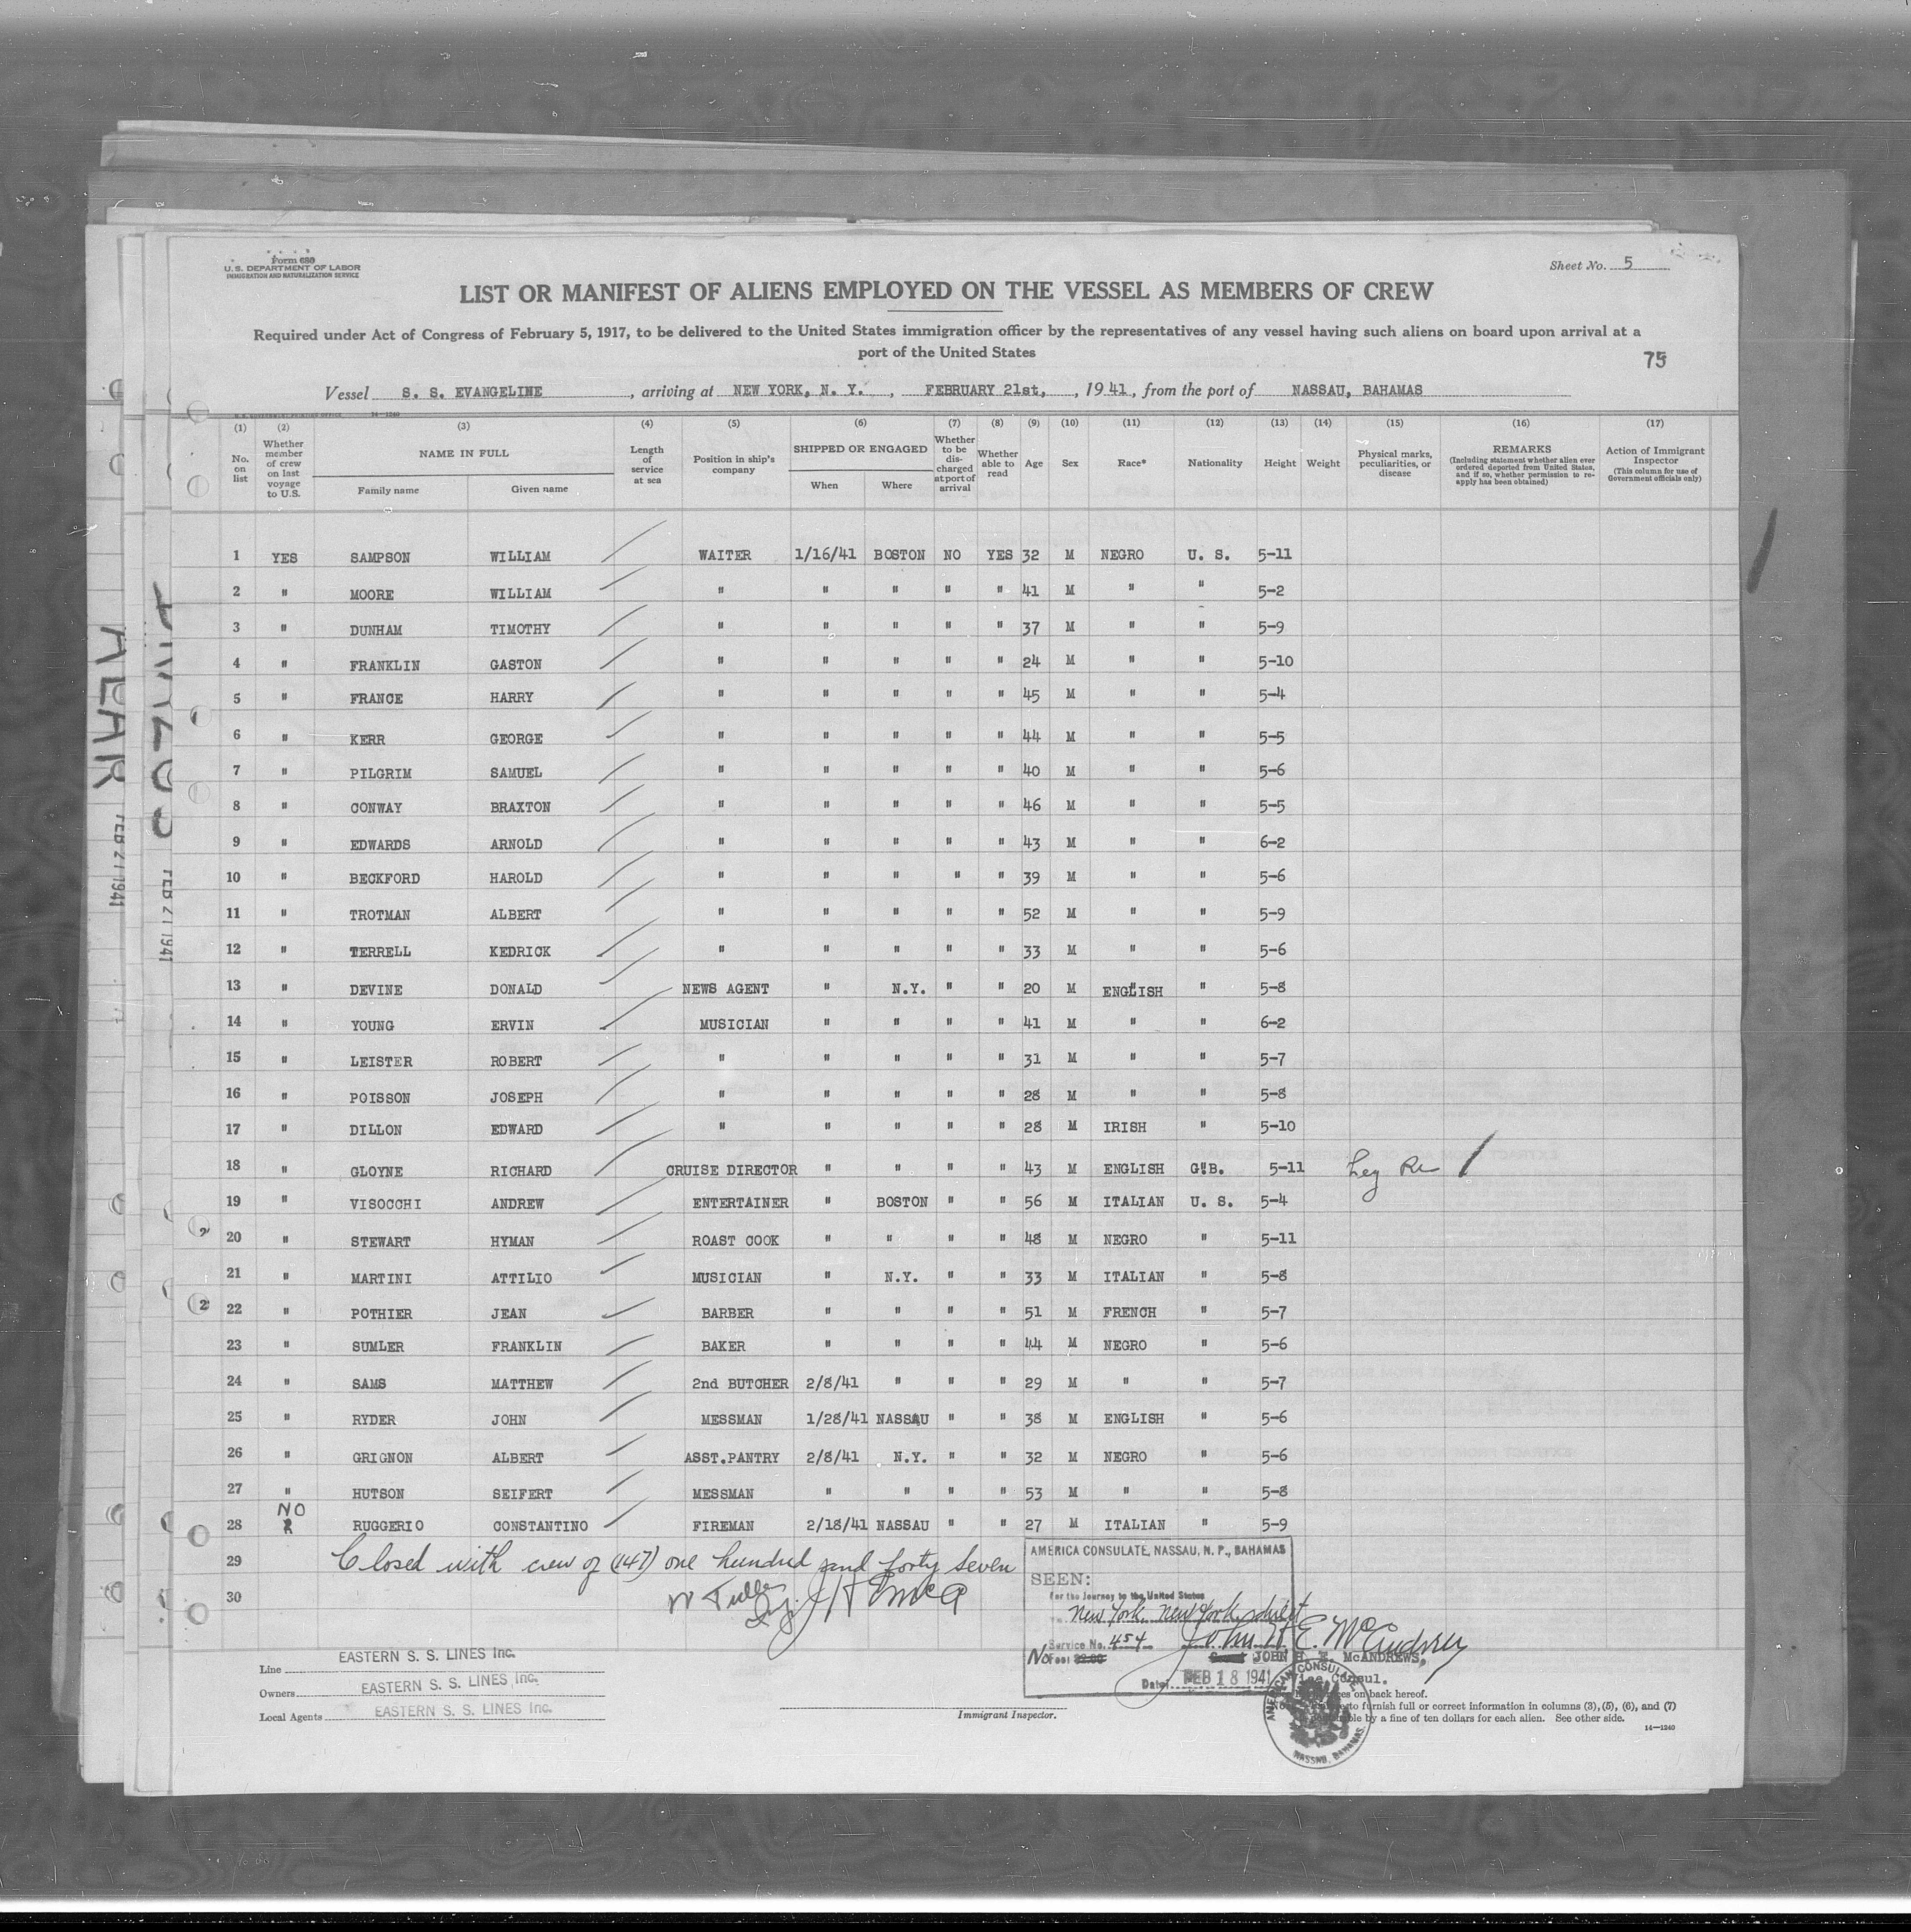 Form 680
U. S. DEPARTMENT OF LABOR
IMMIGRATION AND NATURALIZATION SERVICE
Sheet No. 5
LIST OR MANIFEST OF ALIENS EMPLOYED ON THE VESSEL AS MEMBERS OF CREW
Required under Act of Congress of February 5, 1917, to be delivered to the United States immigration officer by the representatives of any vessel having such aliens on board upon arrival at a
port of the United States
75
Vessel S. S. EVANGELINE, arriving at NEW YORK, N. Y., FEBRUARY 21st, , 1941, from the port of NASSAU, BAHAMAS
14—1240
(1) (2) (3) (4) (5) (6) (7) (8) (9) (10) (11) (12) (13) (14) (15) (16) (17)
No. on list | Whether member of crew on last voyage to U.S. | NAME IN FULL Family name Given name | Length of service at sea | Position in ship's company | SHIPPED OR ENGAGED When Where | Whether to be discharged at port of arrival | Whether able to read | Age | Sex | Race* | Nationality | Height | Weight | Physical marks, peculiarities, or disease | REMARKS (Including statement whether alien ever ordered deported from United States, and if so, whether permission to re-apply has been obtained) | Action of Immigrant Inspector (This column for use of Government officials only)
1 YES SAMPSON WILLIAM WAITER 1/16/41 BOSTON NO YES 32 M NEGRO U. S. 5-11
2 " MOORE WILLIAM " " " " " 41 M " " 5-2
3 " DUNHAM TIMOTHY " " " " " 37 M " " 5-9
4 " FRANKLIN GASTON " " " " " 24 M " " 5-10
5 " FRANCE HARRY " " " " " 45 M " " 5-4
6 " KERR GEORGE " " " " " 44 M " " 5-5
7 " PILGRIM SAMUEL " " " " " 40 M " " 5-6
8 " CONWAY BRAXTON " " " " " 46 M " " 5-5
9 " EDWARDS ARNOLD " " " " " 43 M " " 6-2
10 " BECKFORD HAROLD " " " " " 39 M " " 5-6
11 " TROTMAN ALBERT " " " " " 52 M " " 5-9
12 " TERRELL KEDRICK " " " " " 33 M " " 5-6
13 " DEVINE DONALD NEWS AGENT " N.Y. " " 20 M ENGLISH " 5-8
14 " YOUNG ERVIN MUSICIAN " " " " 41 M " " 6-2
15 " LEISTER ROBERT " " " " " 31 M " " 5-7
16 " POISSON JOSEPH " " " " " 28 M " " 5-8
17 " DILLON EDWARD " " " " " 28 M IRISH " 5-10
18 " GLOYNE RICHARD CRUISE DIRECTOR " " " " 43 M ENGLISH G.B. 5-11
19 " VISOCCHI ANDREW ENTERTAINER " BOSTON " " 56 M ITALIAN U. S. 5-4
20 " STEWART HYMAN ROAST COOK " " " " 48 M NEGRO " 5-11
21 " MARTINI ATTILIO MUSICIAN " N.Y. " " 33 M ITALIAN " 5-8
22 " POTHIER JEAN BARBER " " " " 51 M FRENCH " 5-7
23 " SUMLER FRANKLIN BAKER " " " " 44 M NEGRO " 5-6
24 " SAMS MATTHEW 2nd BUTCHER 2/8/41 " " " 29 M " " 5-7
25 " RYDER JOHN MESSMAN 1/28/41 NASSAU " " 38 M ENGLISH " 5-6
26 " GRIGNON ALBERT ASST.PANTRY 2/8/41 N.Y. " " 32 M NEGRO " 5-6
27 " HUTSON SEIFERT MESSMAN " " " " 53 M " " 5-8
28 NO RUGGERIO CONSTANTINO FIREMAN 2/18/41 NASSAU " " 27 M ITALIAN " 5-9
29 Closed with crew of (147) one hundred and forty seven
30
J H E McA
AMERICA CONSULATE, NASSAU, N. P., BAHAMAS
SEEN:
for the Journey to the United States
New York, New York
Service No. 454
No Fee
John H. E. McAndrews
JOHN H. E. McANDREWS,
Vice Consul.
Date: FEB 18 1941
AMERICAN CONSULATE NASSAU, BAHAMAS
Line EASTERN S. S. LINES Inc.
Owners EASTERN S. S. LINES Inc.
Local Agents EASTERN S. S. LINES Inc.
Immigrant Inspector.
on back hereof.
to furnish full or correct information in columns (3), (5), (6), and (7)
by a fine of ten dollars for each alien. See other side.
14—1240
FEB 21 1941
FEB 21 1941